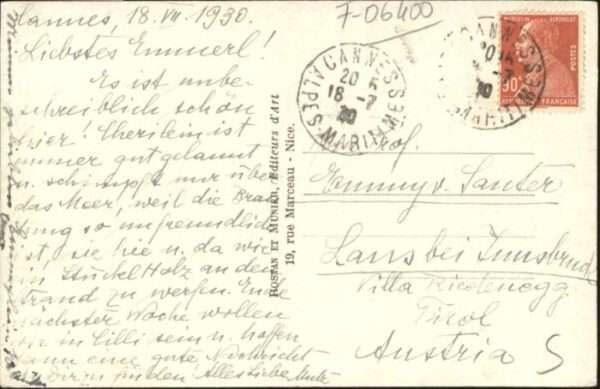 Cannes, 18. VII. 1930.
Liebstes Emmerl!
Es ist unbe-
schreiblich schön
hier! Cherilein ist
immer gut gelaunt
u. schimpft nur über
das Meer, weil die Bran-
dung so unfreundlich
ist, sie hie u. da wie
ein Stückel Holz an den
Strand zu werfen. Ende
nächster Woche wollen
wir in Cilli sein u. hoffen
dann eine gute Nachricht
von Dir zu finden! Alles Liebe
7-06400
CANNES
20
18-7
30
ALPES-MARITIMES
CANNES
-7
30
MARITIMES
MARCELIN BERTHELOT
POSTES
90c
REPUBLIQUE FRANCAISE
ROSTAN ET MUNIER, Editeurs d'Art
19, rue Marceau - Nice.
Prof.
Emmy v. Santer
Lans bei Innsbruck
Villa Riedenegg
Tirol
Austria